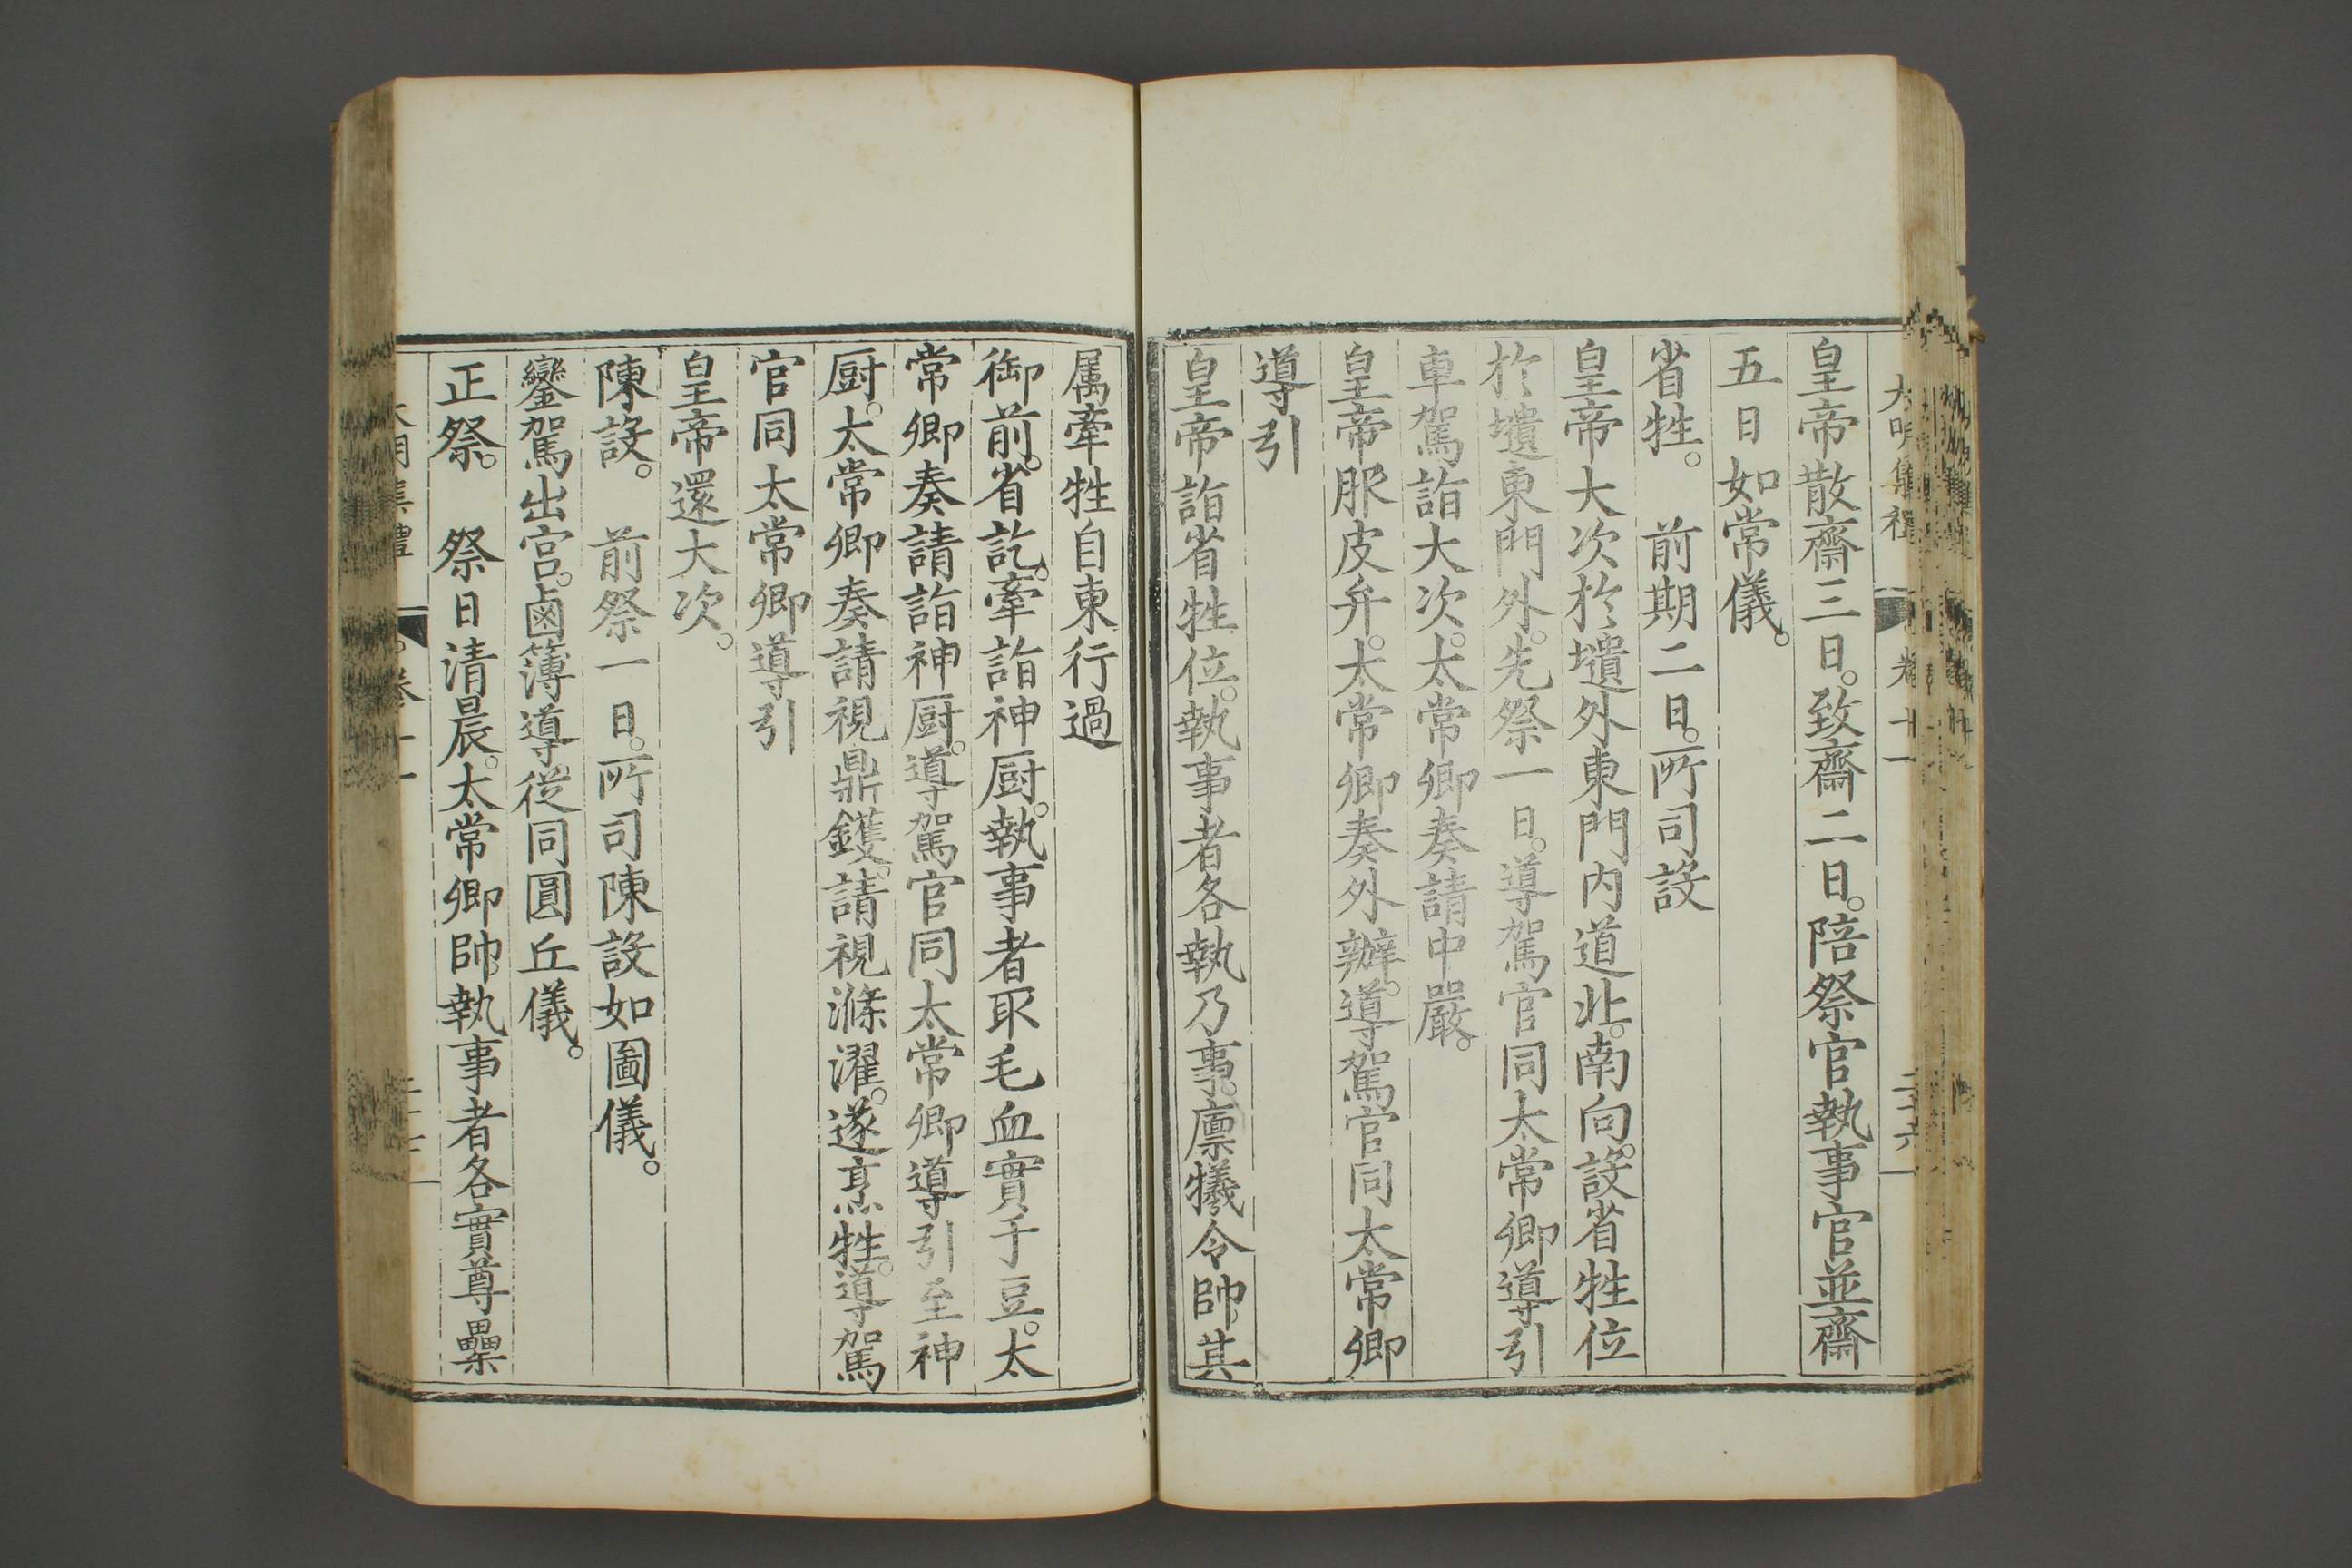 大明集禮 卷十一 二十六
皇帝散齋三日。致齋二日。陪祭官執事官並齋
五日如常儀。
省牲。 前期二日。所司設
皇帝大次於壝外東門內道北。南向。設省牲位
於壝東門外。先祭一日。導駕官同太常卿導引
車駕詣大次。太常卿奏請中嚴。
皇帝服皮弁。太常卿奏外辦。導駕官同太常卿
導引
皇帝詣省牲位。執事者各執乃事。廩犧令帥其
屬牽牲自東行過
御前。省訖。牽詣神厨。執事者取毛血實于豆。太
常卿奏請詣神厨。導駕官同太常卿導引至神
厨。太常卿奏請視鼎鑊。請視滌濯。遂烹牲。導駕
官同太常卿導引
皇帝還大次。
陳設。 前祭一日。所司陳設如圖儀。
鑾駕出宮。鹵簿導從同圓丘儀。
正祭。 祭日清晨。太常卿帥執事者各實尊罍
大明集禮 卷十一